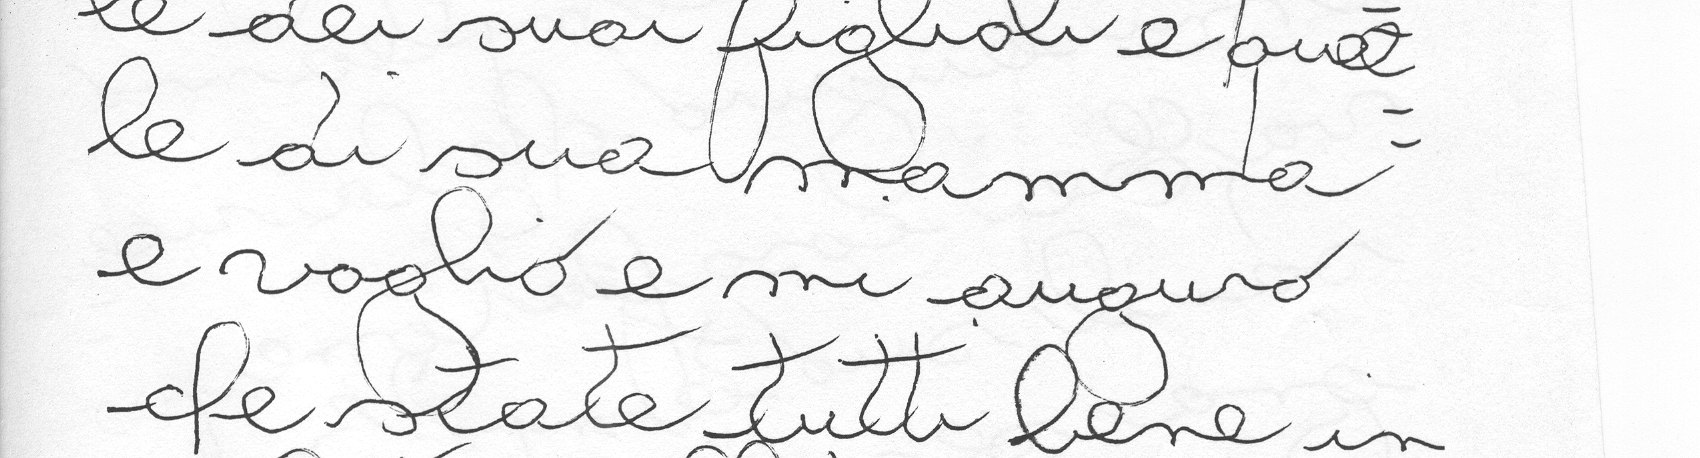 le dei suoi figlioli e quel=
le di sua mamma
e voglio e mi auguro
che state tutti bene in